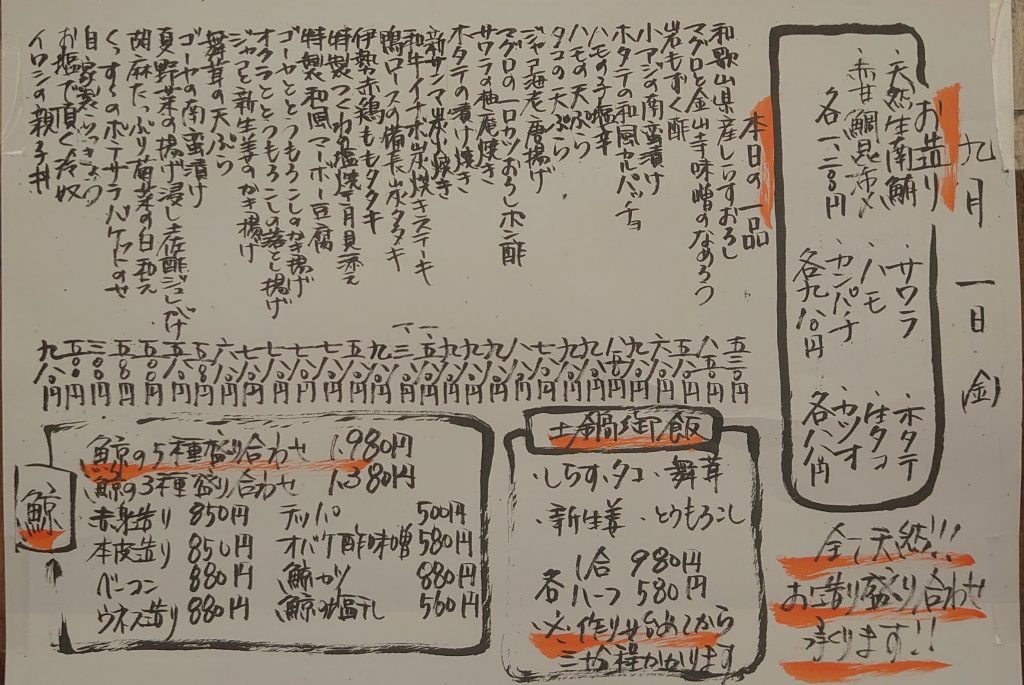 九月 一日 金
お造り
・天然生南鮪
・赤甘鯛昆布〆
各一、二八〇円
・サワラ
・ハモ
・カンパチ
各九八〇円
・ホタテ
・生タコ
・カツオ
各八八〇円
全て天然!!
お造り盛り合わせ
承ります!!
本日の一品
和歌山県産しらすおろし 五三〇円
マグロと金山寺味噌のなめろう 八五〇円
岩もずく酢 五八〇円
小アジの南蛮漬け
ホタテの和風カルパッチョ
ハモの子塩辛
ハモの天ぷら
タコの天ぷら
ジャコ海老唐揚げ
マグロの一口カツおろしポン酢
サワラの柚庵焼き
ホタテの漬け焼き
新サンマ炭火焼き
和牛イチボ炭火焼きステーキ
鴨ロースの備長炭タタキ
伊勢赤鶏ももタタキ
特製つくねの塩焼 月見添え
特製和風マーボー豆腐
ゴーヤととうもろこしのかき揚げ
オクラととうもろこしの落とし揚げ
ジャコと新生姜のかき揚げ
舞茸の天ぷら
ゴーヤの南蛮漬け
夏野菜の揚げ浸し土佐酢ジュレがけ
胡麻たっぷり菊菜の白和え
くんずるのポテサラバケットのせ
自家製らっきょう 三〇〇円
お塩で頂く冷奴 五〇〇円
イワシの親子丼 九八〇円
土鍋御飯
・しらす・タコ・舞茸
・新生姜・とうもろこし
各 1合 980円
ハーフ 580円
※作り始めてから
三十分程かかります
鯨
鯨の5種盛り合わせ 1,980円
鯨の3種盛り合わせ 1,380円
赤身造り 850円 テッパ 500円
本皮造り 850円 オバケ酢味噌 580円
ベーコン 880円 鯨カツ 880円
ウネス造り 880円 鯨の塩干し 560円